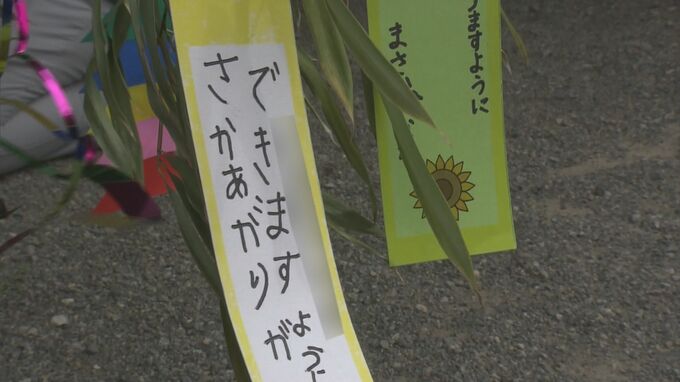 さかあがりが
できますように
ますように